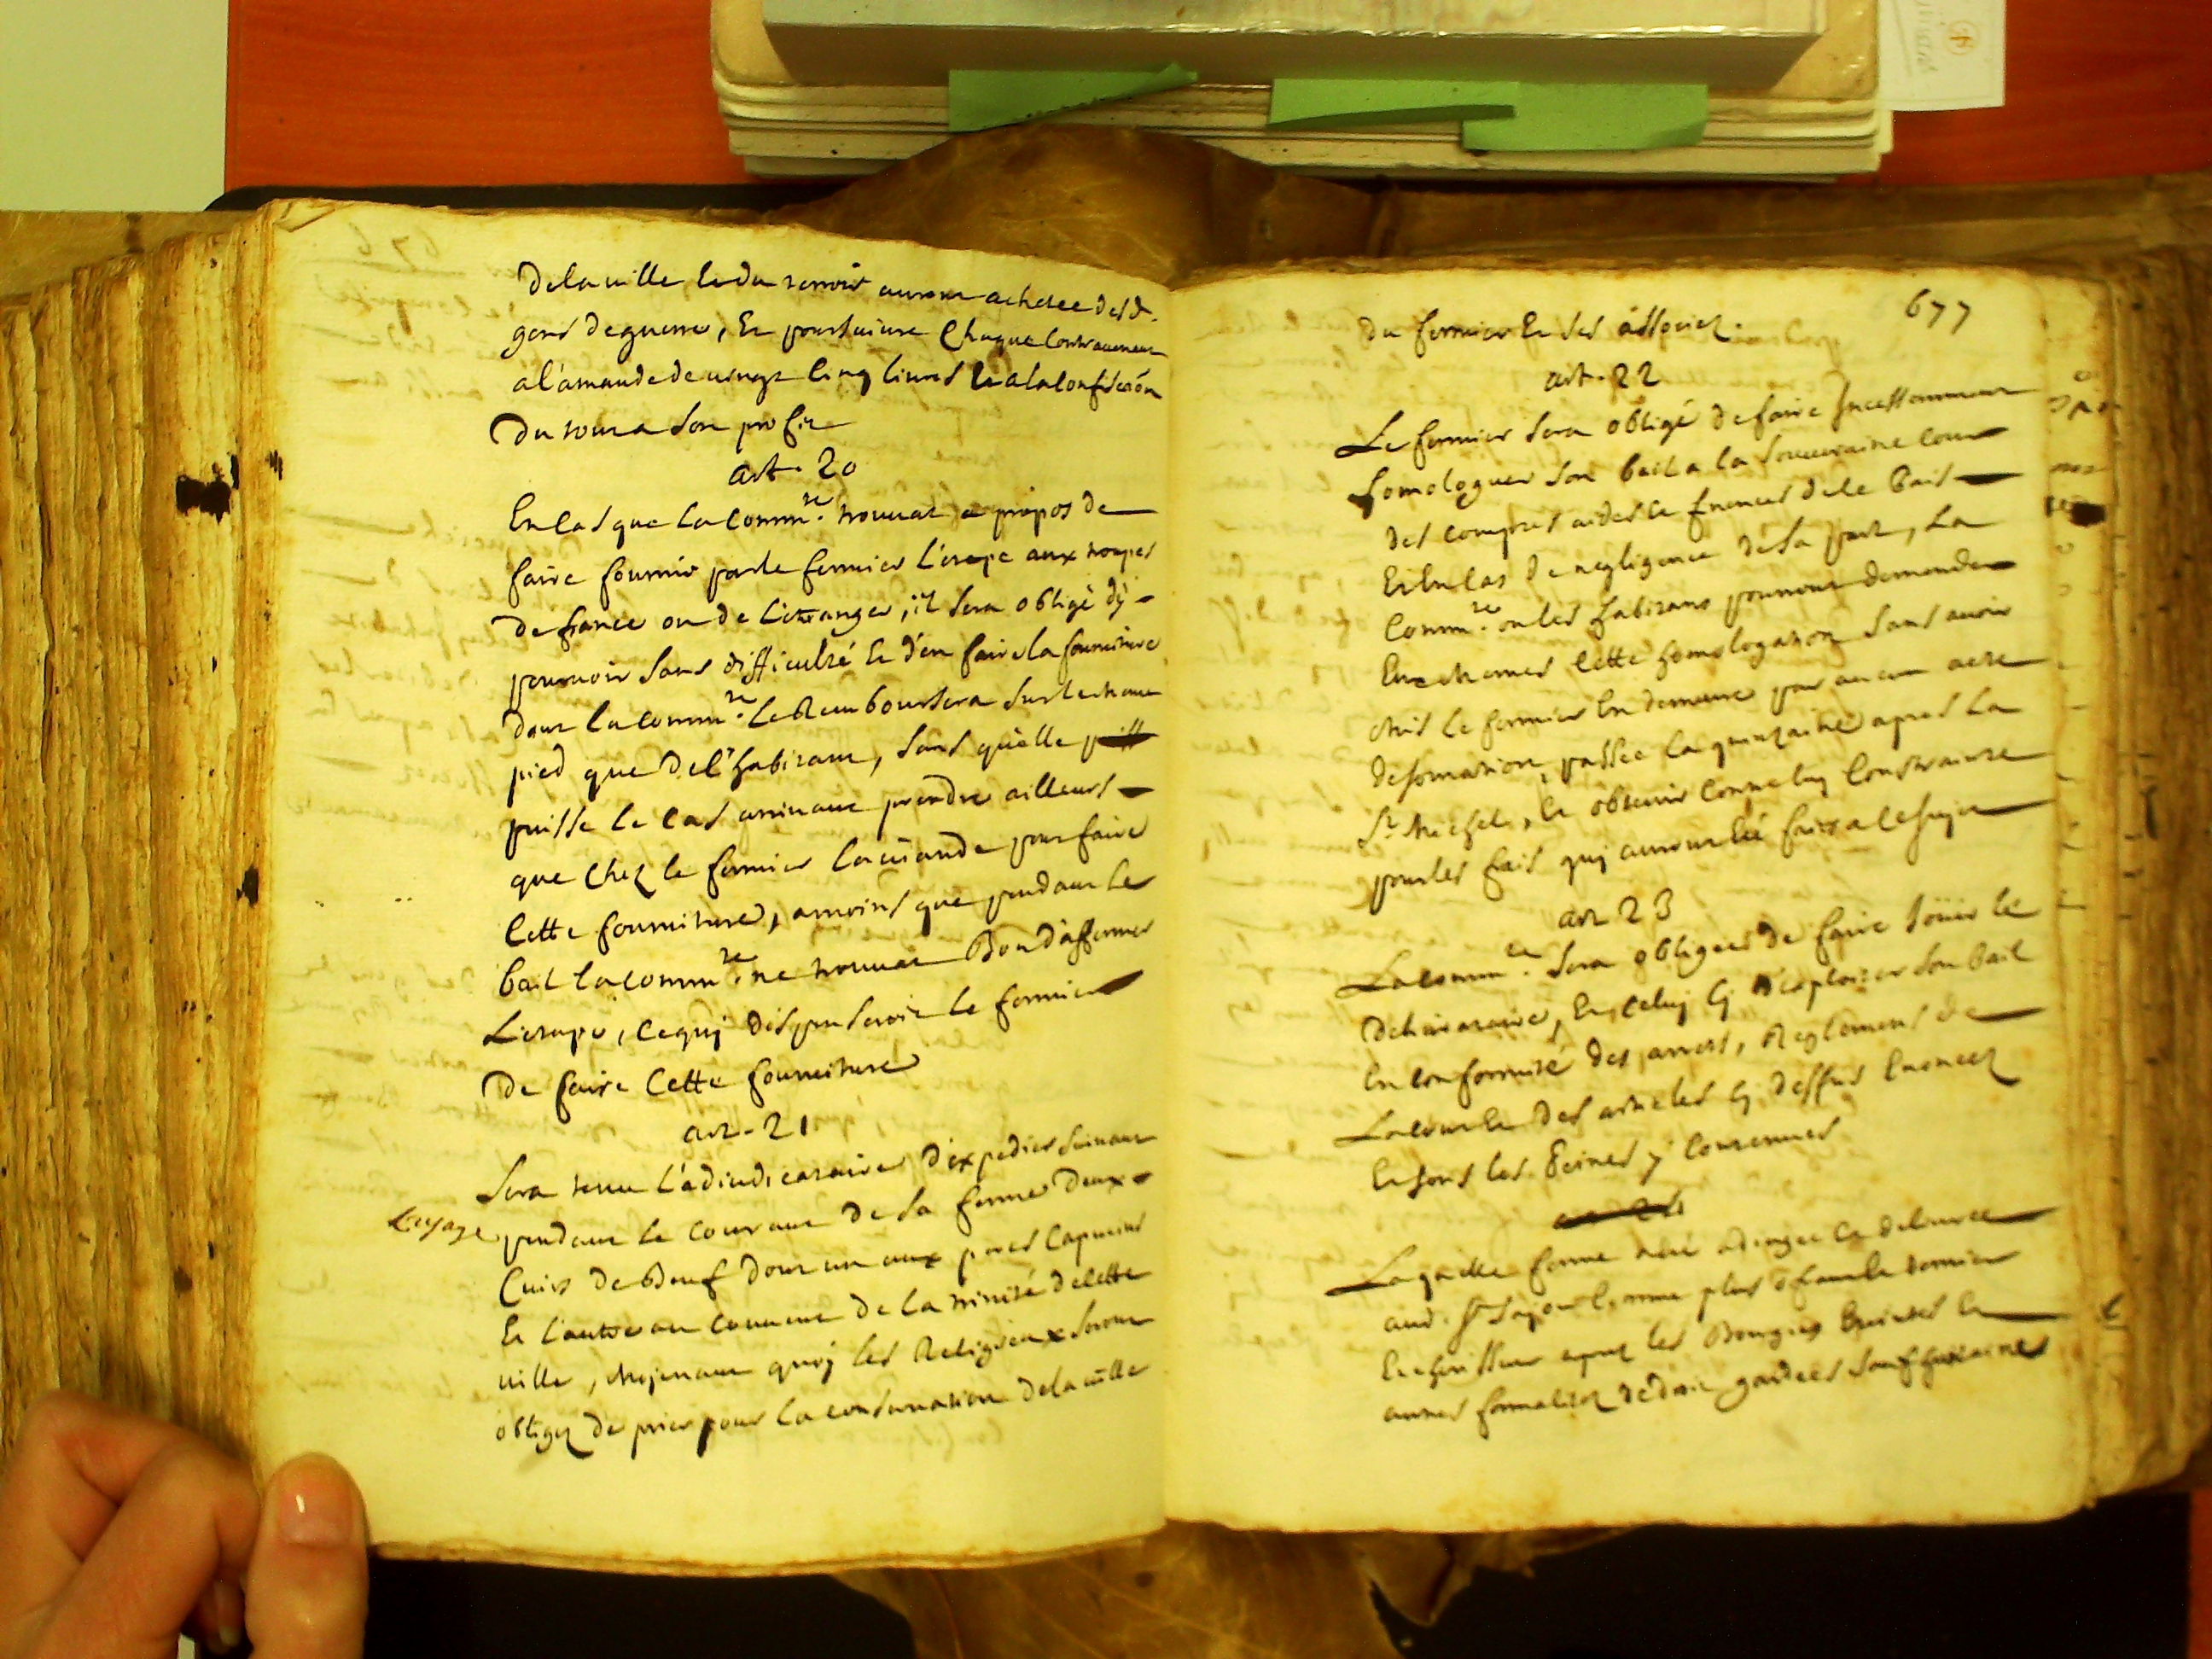 De la ville et du terroir auront achetée desd.
gens de guerre, Et poursuivre Chaque Contrevenent
a l'amande de vingt Cinq livres Et a la Confiscaõn
Du tout a son profit
art. 20
En Cas que la Comm.té trouvat a propos de
faire fournir par le fermier l'etape aux troupes
de france ou de l'etranger, il sera obligé d'y
pourvoir sans difficulté Et d'en faire la fourniture
dont la Comm.té Le Remboursera sur le meme
pied que de l'habitant, sans qu'elle
puisse le Cas arrivant prendre ailleurs
que Chez le fermier la viande pour faire
Cette fourniture, amoins que pendant le
bail la Comm.té ne trouvat Bon d'affermer
L'etape, Ce quy dispenseroit le fermier
De faire Cette fourniture
art. 21
Sera tenu l'adiudicataire d'expedier suivant
L'usage pendant le Courant de sa ferme deux
Cuirs de Bœuf dont un aux peres Capucins
Et l'autre au Couvent de la trinité de Cette
ville, Moyenant quoy les Religieux seront
obligez de prier pour la Conservation de la ville
677
du fermier Et ses associez.
art. 22
Le fermier sera obligé de faire Incessemment
homologuer son bail a la souveraine Cour
des Comptes aides Et finances de Ce Pais
Et En Cas de negligence de sa part, La
Comm.té ou les habitans pourront demander
Eux memes Cette homologation sans avoir
Mis le fermier En demeure par aucun acte
passée la quinzaine apres La
St. Michel, Et obtenir Contre luy Contrainte
pour les frais quy auront Eté faits a Ce sujet
art 23
La Comm.té sera obligée de faire Joüir le
Et Celuy Cy d'exploiter son bail
En Conformité des arrets, Reglemens de
La Cour Et des articles Cy dessus Enoncez
Et sous les Peines y Contenues
Laquelle ferme a eté adiugée Et delivrée
aud. Sr. Comme plus ofrant Et dernier
Encherisseur apres les Bougies Eteintes Et
autres formalitez de droit gardées